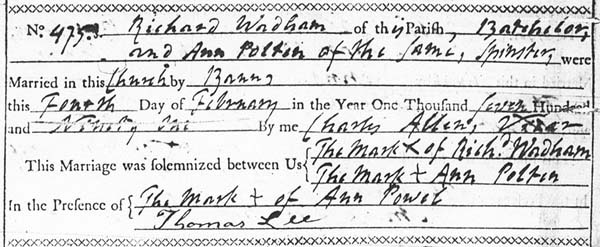 No 475 Richard Wadham of this Parish, Batchelor,
and Ann Polten of the Same, Spinster, were
Married in this Church by Banns
this Fourth Day of February in the Year One Thousand Seven Hundred
and Ninety One By me Charles Allen, Vicar
This Marriage was solemnized between Us { The Mark + of Richd Wadham
The Mark + Ann Polten
In the Presence of { The Mark + of Ann Powel
Thomas Lee